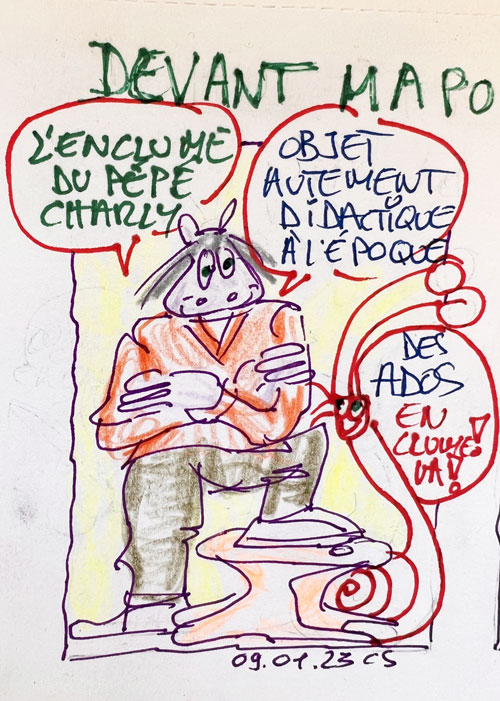 DEVANT MAPO
L'ENCLUME
DU PÉPÉ
CHARLY
OBJET
AUTEMENT
DIDACTIQUE
À L'ÉPOQUE
DES
ADOS
EN
CLUME!
VA!
09.01.23 CS